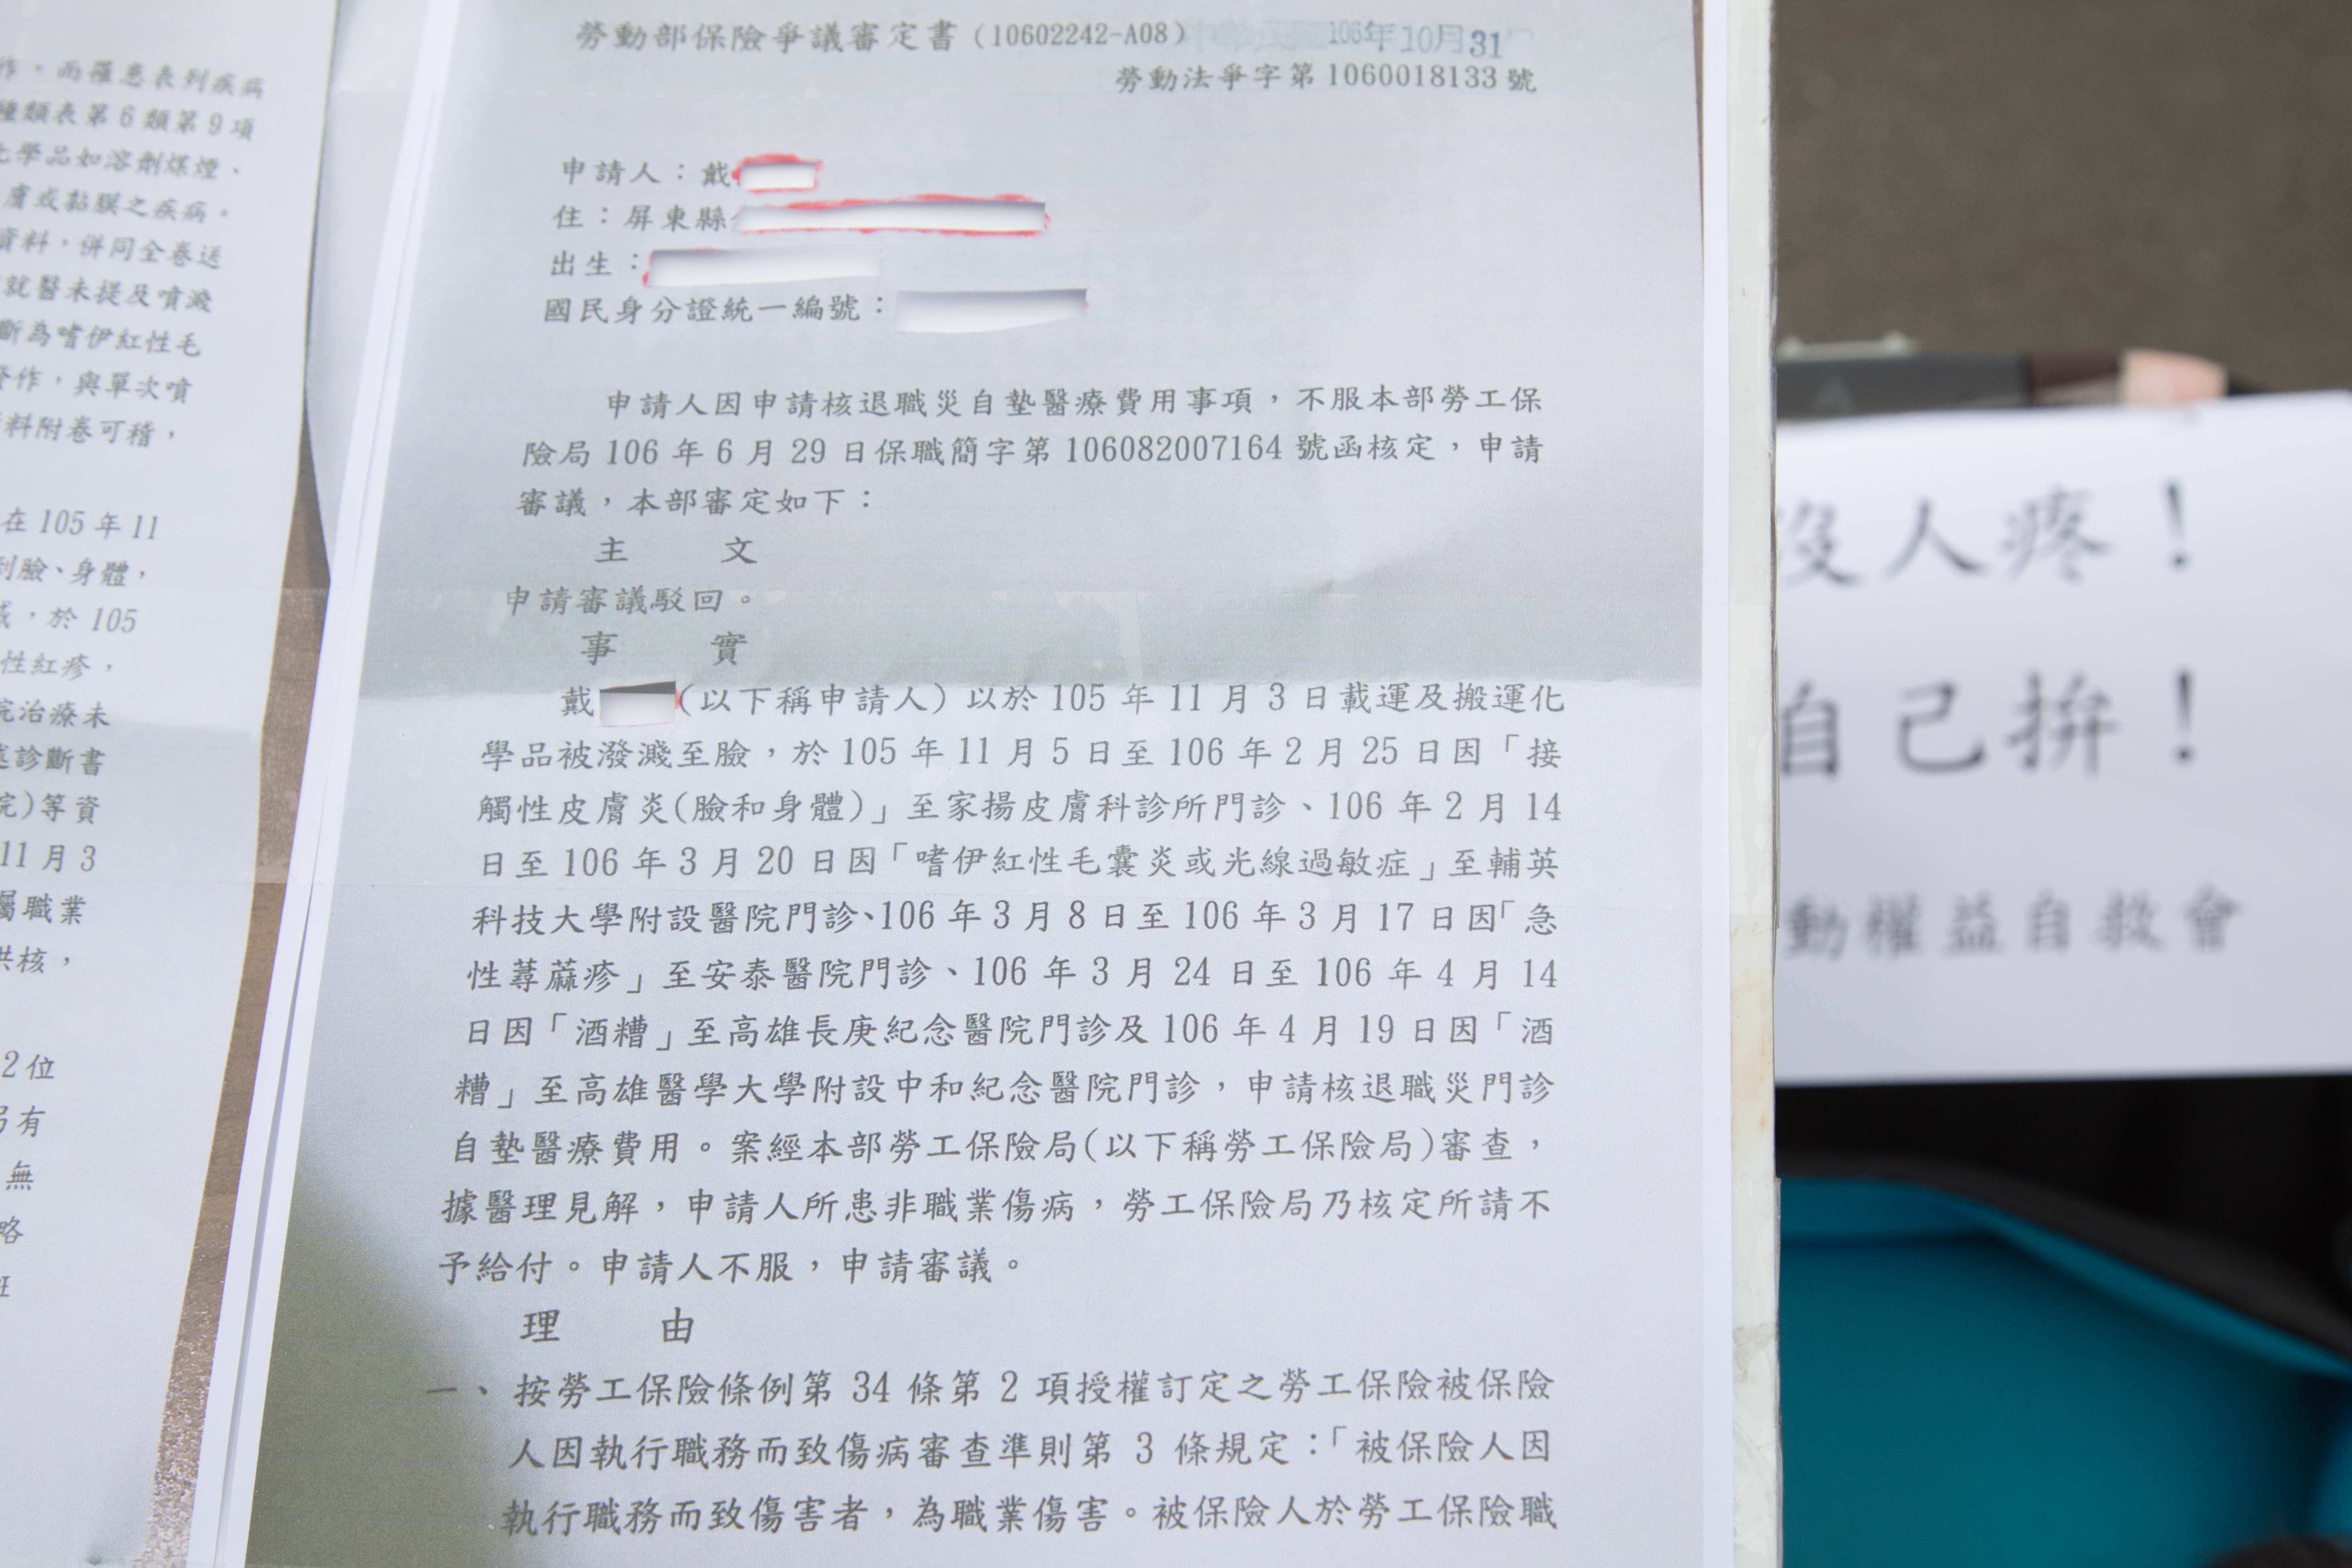 作，而罹患表列疾病
種類表第6類第9項
化學品如溶劑煤煙、
膚或黏膜之疾病。
資料，併同全卷送
就醫未提及噴濺
斷為嗜伊紅性毛
發作，與單次噴
料附卷可稽，
在105年11
到臉、身體，
，於105
性紅疹，
院治療未
診斷書
院)等資
11月3
屬職業
供核，
2位
另有
無
略
勞動部保險爭議審定書(10602242-A08)中華民國106年10月31日
勞動法爭字第1060018133號
申請人：戴
住：屏東縣
出生：
國民身分證統一編號：
申請人因申請核退職災自墊醫療費用事項，不服本部勞工保
險局106年6月29日保職簡字第106082007164號函核定，申請
審議，本部審定如下：
主 文
申請審議駁回。
事 實
戴(以下稱申請人)以於105年11月3日載運及搬運化
學品被潑濺至臉，於105年11月5日至106年2月25日因「接
觸性皮膚炎(臉和身體)」至家揚皮膚科診所門診、106年2月14
日至106年3月20日因「嗜伊紅性毛囊炎或光線過敏症」至輔英
科技大學附設醫院門診、106年3月8日至106年3月17日因「急
性蕁蔴疹」至安泰醫院門診、106年3月24日至106年4月14
日因「酒糟」至高雄長庚紀念醫院門診及106年4月19日因「酒
糟」至高雄醫學大學附設中和紀念醫院門診，申請核退職災門診
自墊醫療費用。案經本部勞工保險局(以下稱勞工保險局)審查，
據醫理見解，申請人所患非職業傷病，勞工保險局乃核定所請不
予給付。申請人不服，申請審議。
理 由
一、按勞工保險條例第34條第2項授權訂定之勞工保險被保險
人因執行職務而致傷病審查準則第3條規定：「被保險人因
執行職務而致傷害者，為職業傷害。被保險人於勞工保險職
沒人疼！
自己拚！
動權益自救會